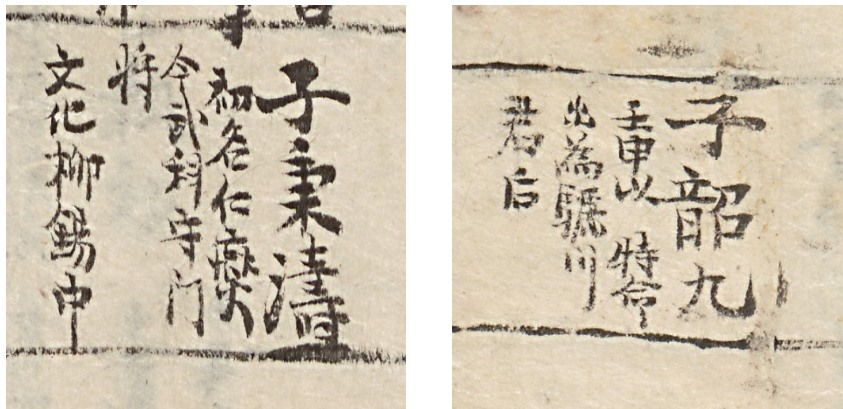 子秉濤
初名仁燮
今武科守門
將
文化柳錫中
子韶九
壬申以 特命
出為驪川
君后